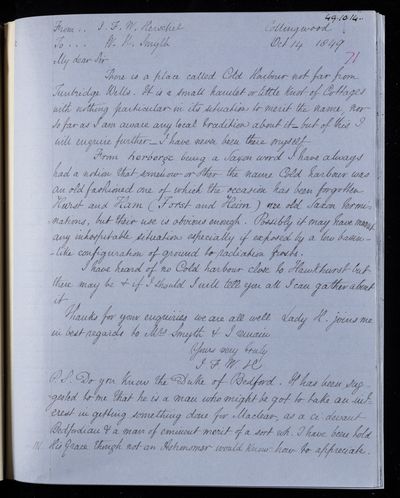 49.10.14
From .. J. F. W. Herschel Collingwood
To .... W. H. Smyth Oct 14 1849
71
My dear Sir
There is a place called Cold Harbour not far from
Tunbridge Wells. It is a small hamlet or little knot of Cottages
with nothing particular in its situation to merit the name, nor
so far as I am aware any local tradition about it – but of this I
will enquire further – I have never been there myself.
From herberge being a Saxon word I have always
had a notion that somehow or other the name Cold harbour was
an old fashioned one of which the occasion has been forgotten
Hurst and Ham (Forst and Heim) are old Saxon termi-
nations, but their use is obvious enough. Possibly it may have meant
any inhospitable situation especially if exposed by a low basin-
-like configuration of ground to radiation frosts.
I have heard of no Cold harbour close to Hawkhurst but
there may be & if I should I will tell you all I can gather about
it
Thanks for your enquiries we are all well Lady H. joins me
in best regards to Mrs Smyth & I remain
Yours very truly
J F W H
P.S. Do you know the Duke of Bedford. It has been sug-
gested to me that he is a man who might be got to take an int-
erest in getting something done for Maclear, as a ci-devant
Bedfordian & a man of eminent merit of a sort wh. I have been told
His Grace though not an Astronomer would know how to appreciate.